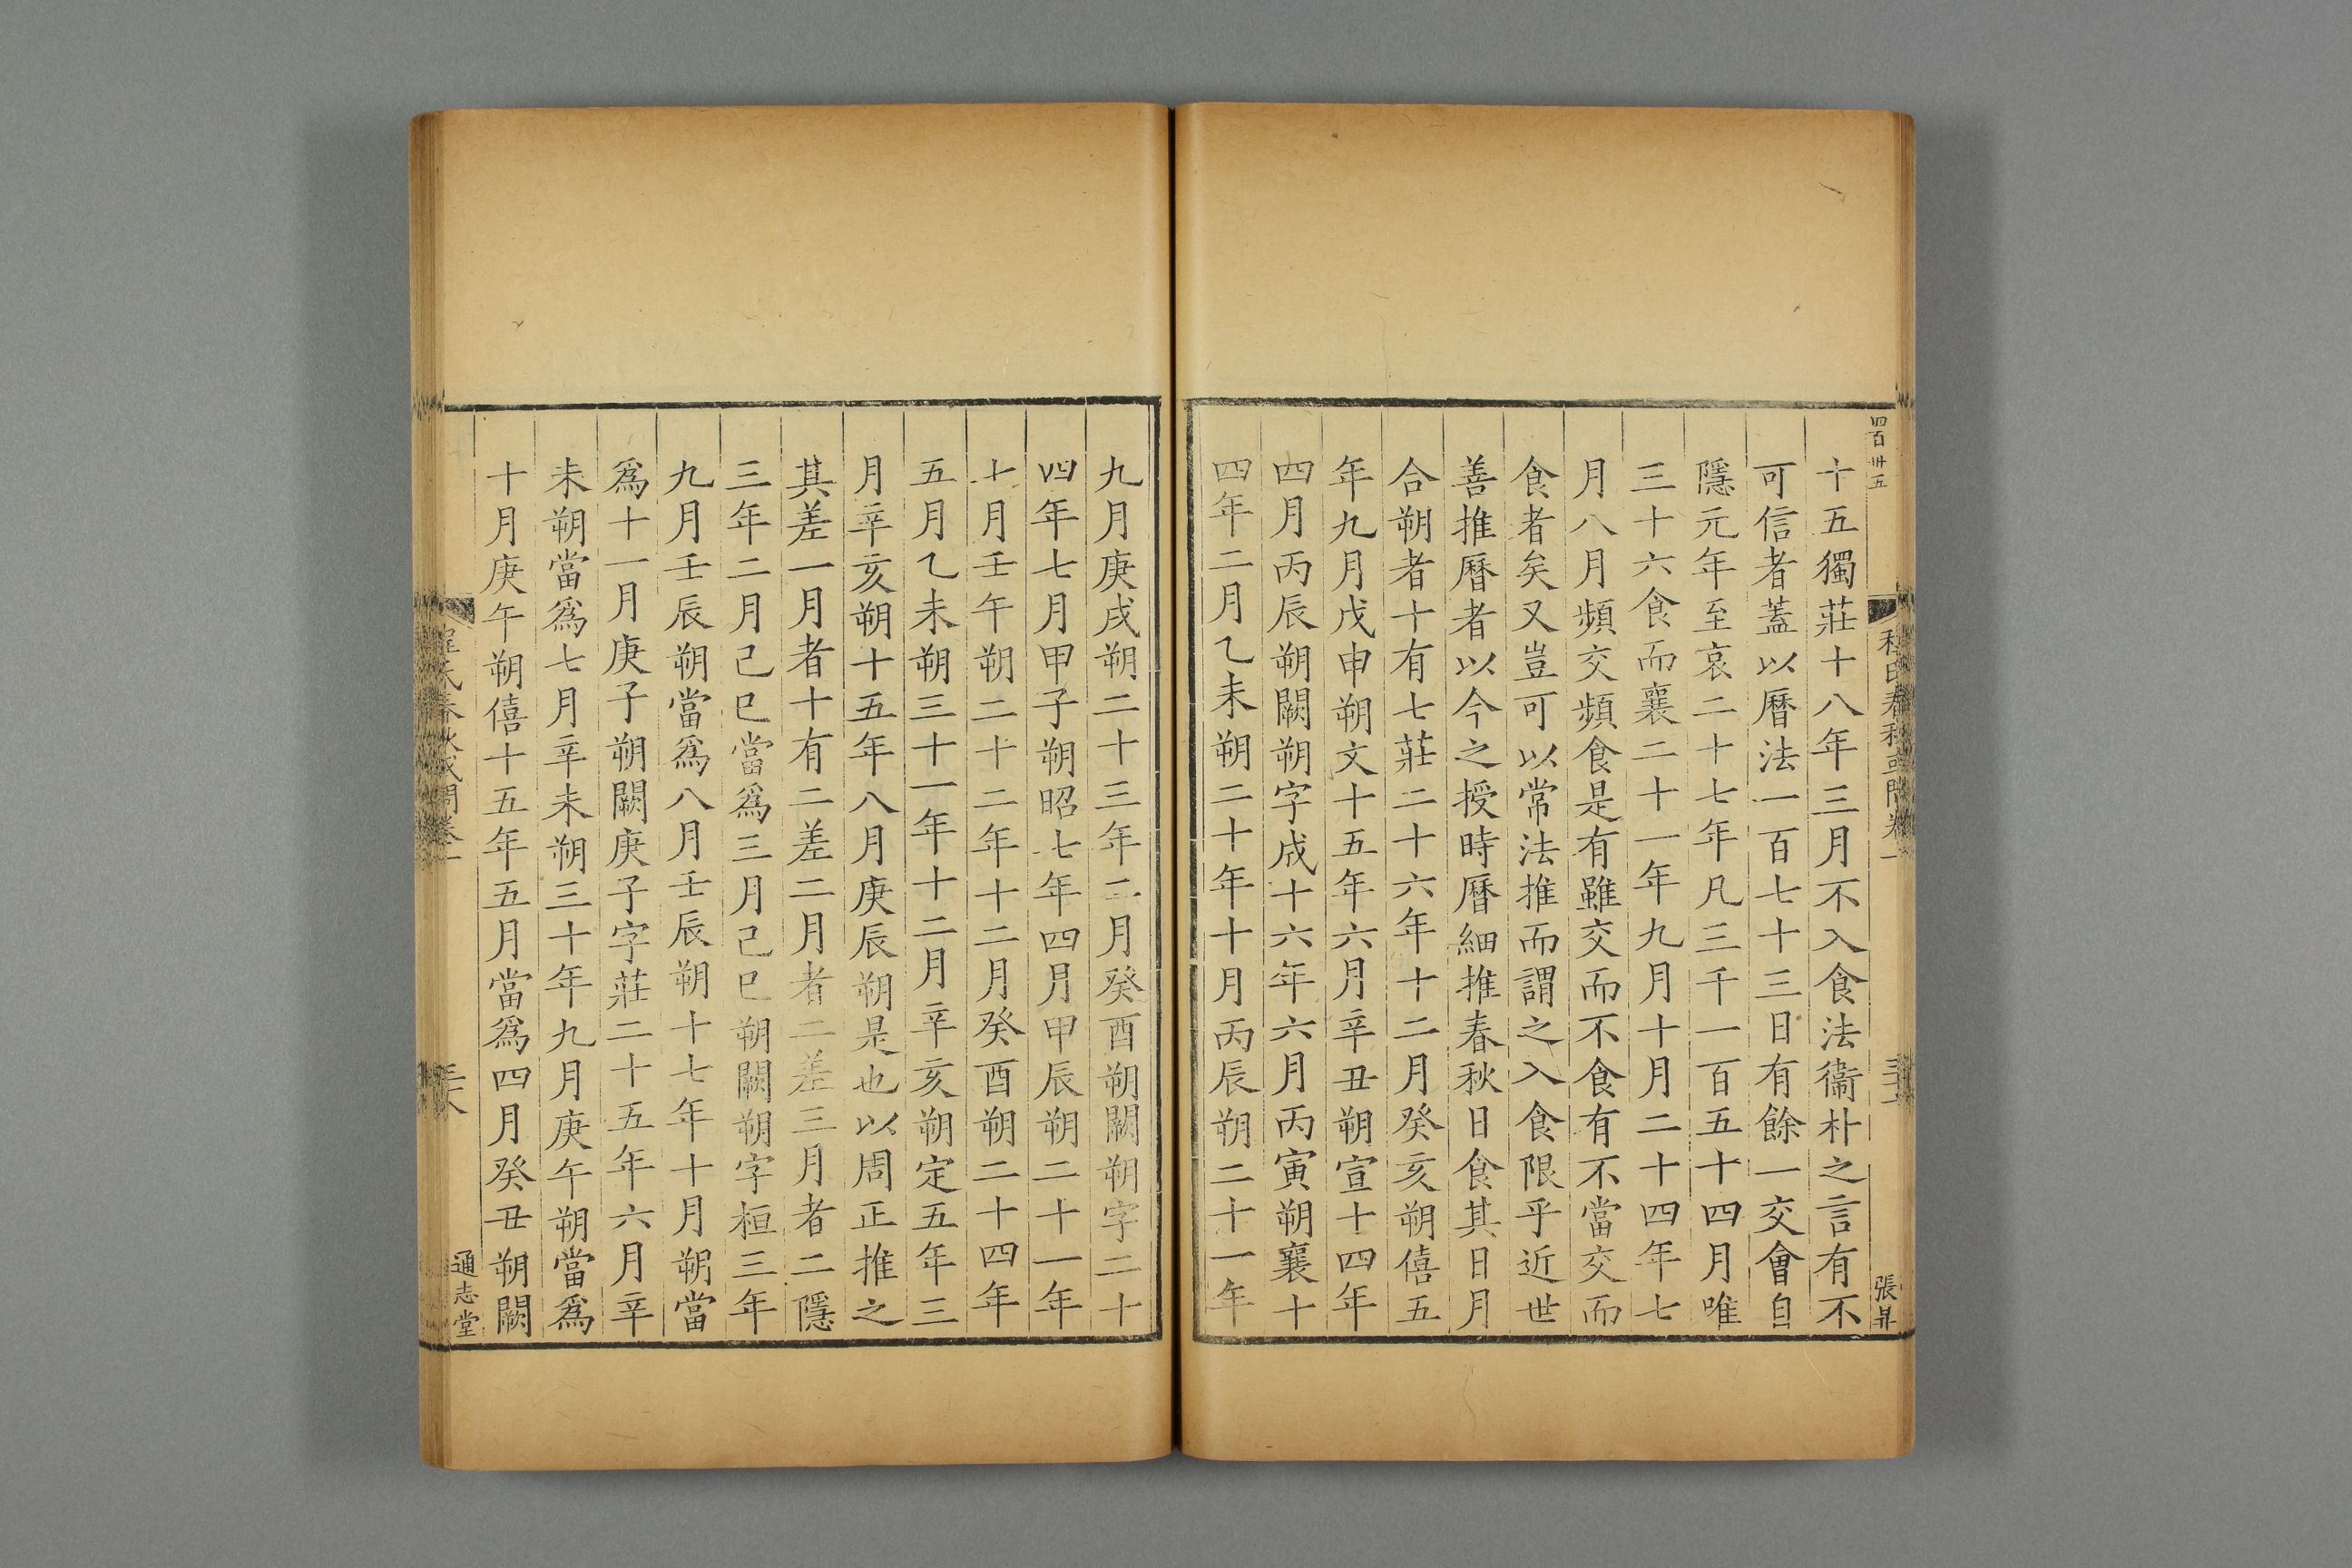 四百卅五
張昇
十五獨莊十八年三月不入食法衞朴之言有不
可信者蓋以曆法一百七十三日有餘一交會自
隱元年至哀二十七年凡三千一百五十四月唯
三十六食而襄二十一年九月十月二十四年七
月八月頻交頻食是有雖交而不食有不當交而
食者矣又豈可以常法推而謂之入食限乎近世
善推曆者以今之授時曆細推春秋日食其日月
合朔者十有七莊二十六年十二月癸亥朔僖五
年九月戊申朔文十五年六月辛丑朔宣十四年
四月丙辰朔闕朔字成十六年六月丙寅朔襄十
四年二月乙未朔二十年十月丙辰朔二十一年
九月庚戌朔二十三年二月癸酉朔闕朔字二十
四年七月甲子朔昭七年四月甲辰朔二十一年
七月壬午朔二十二年十二月癸酉朔二十四年
五月乙未朔三十一年十二月辛亥朔定五年三
月辛亥朔十五年八月庚辰朔是也以周正推之
其差一月者十有二差二月者二差三月者二隱
三年二月己巳當爲三月己巳朔闕朔字桓三年
九月壬辰朔當爲八月壬辰朔十七年十月朔當
爲十一月庚子朔闕庚子字莊二十五年六月辛
未朔當爲七月辛未朔三十年九月庚午朔當爲
十月庚午朔僖十五年五月當爲四月癸丑朔闕
程氏春秋或問卷一
通志堂